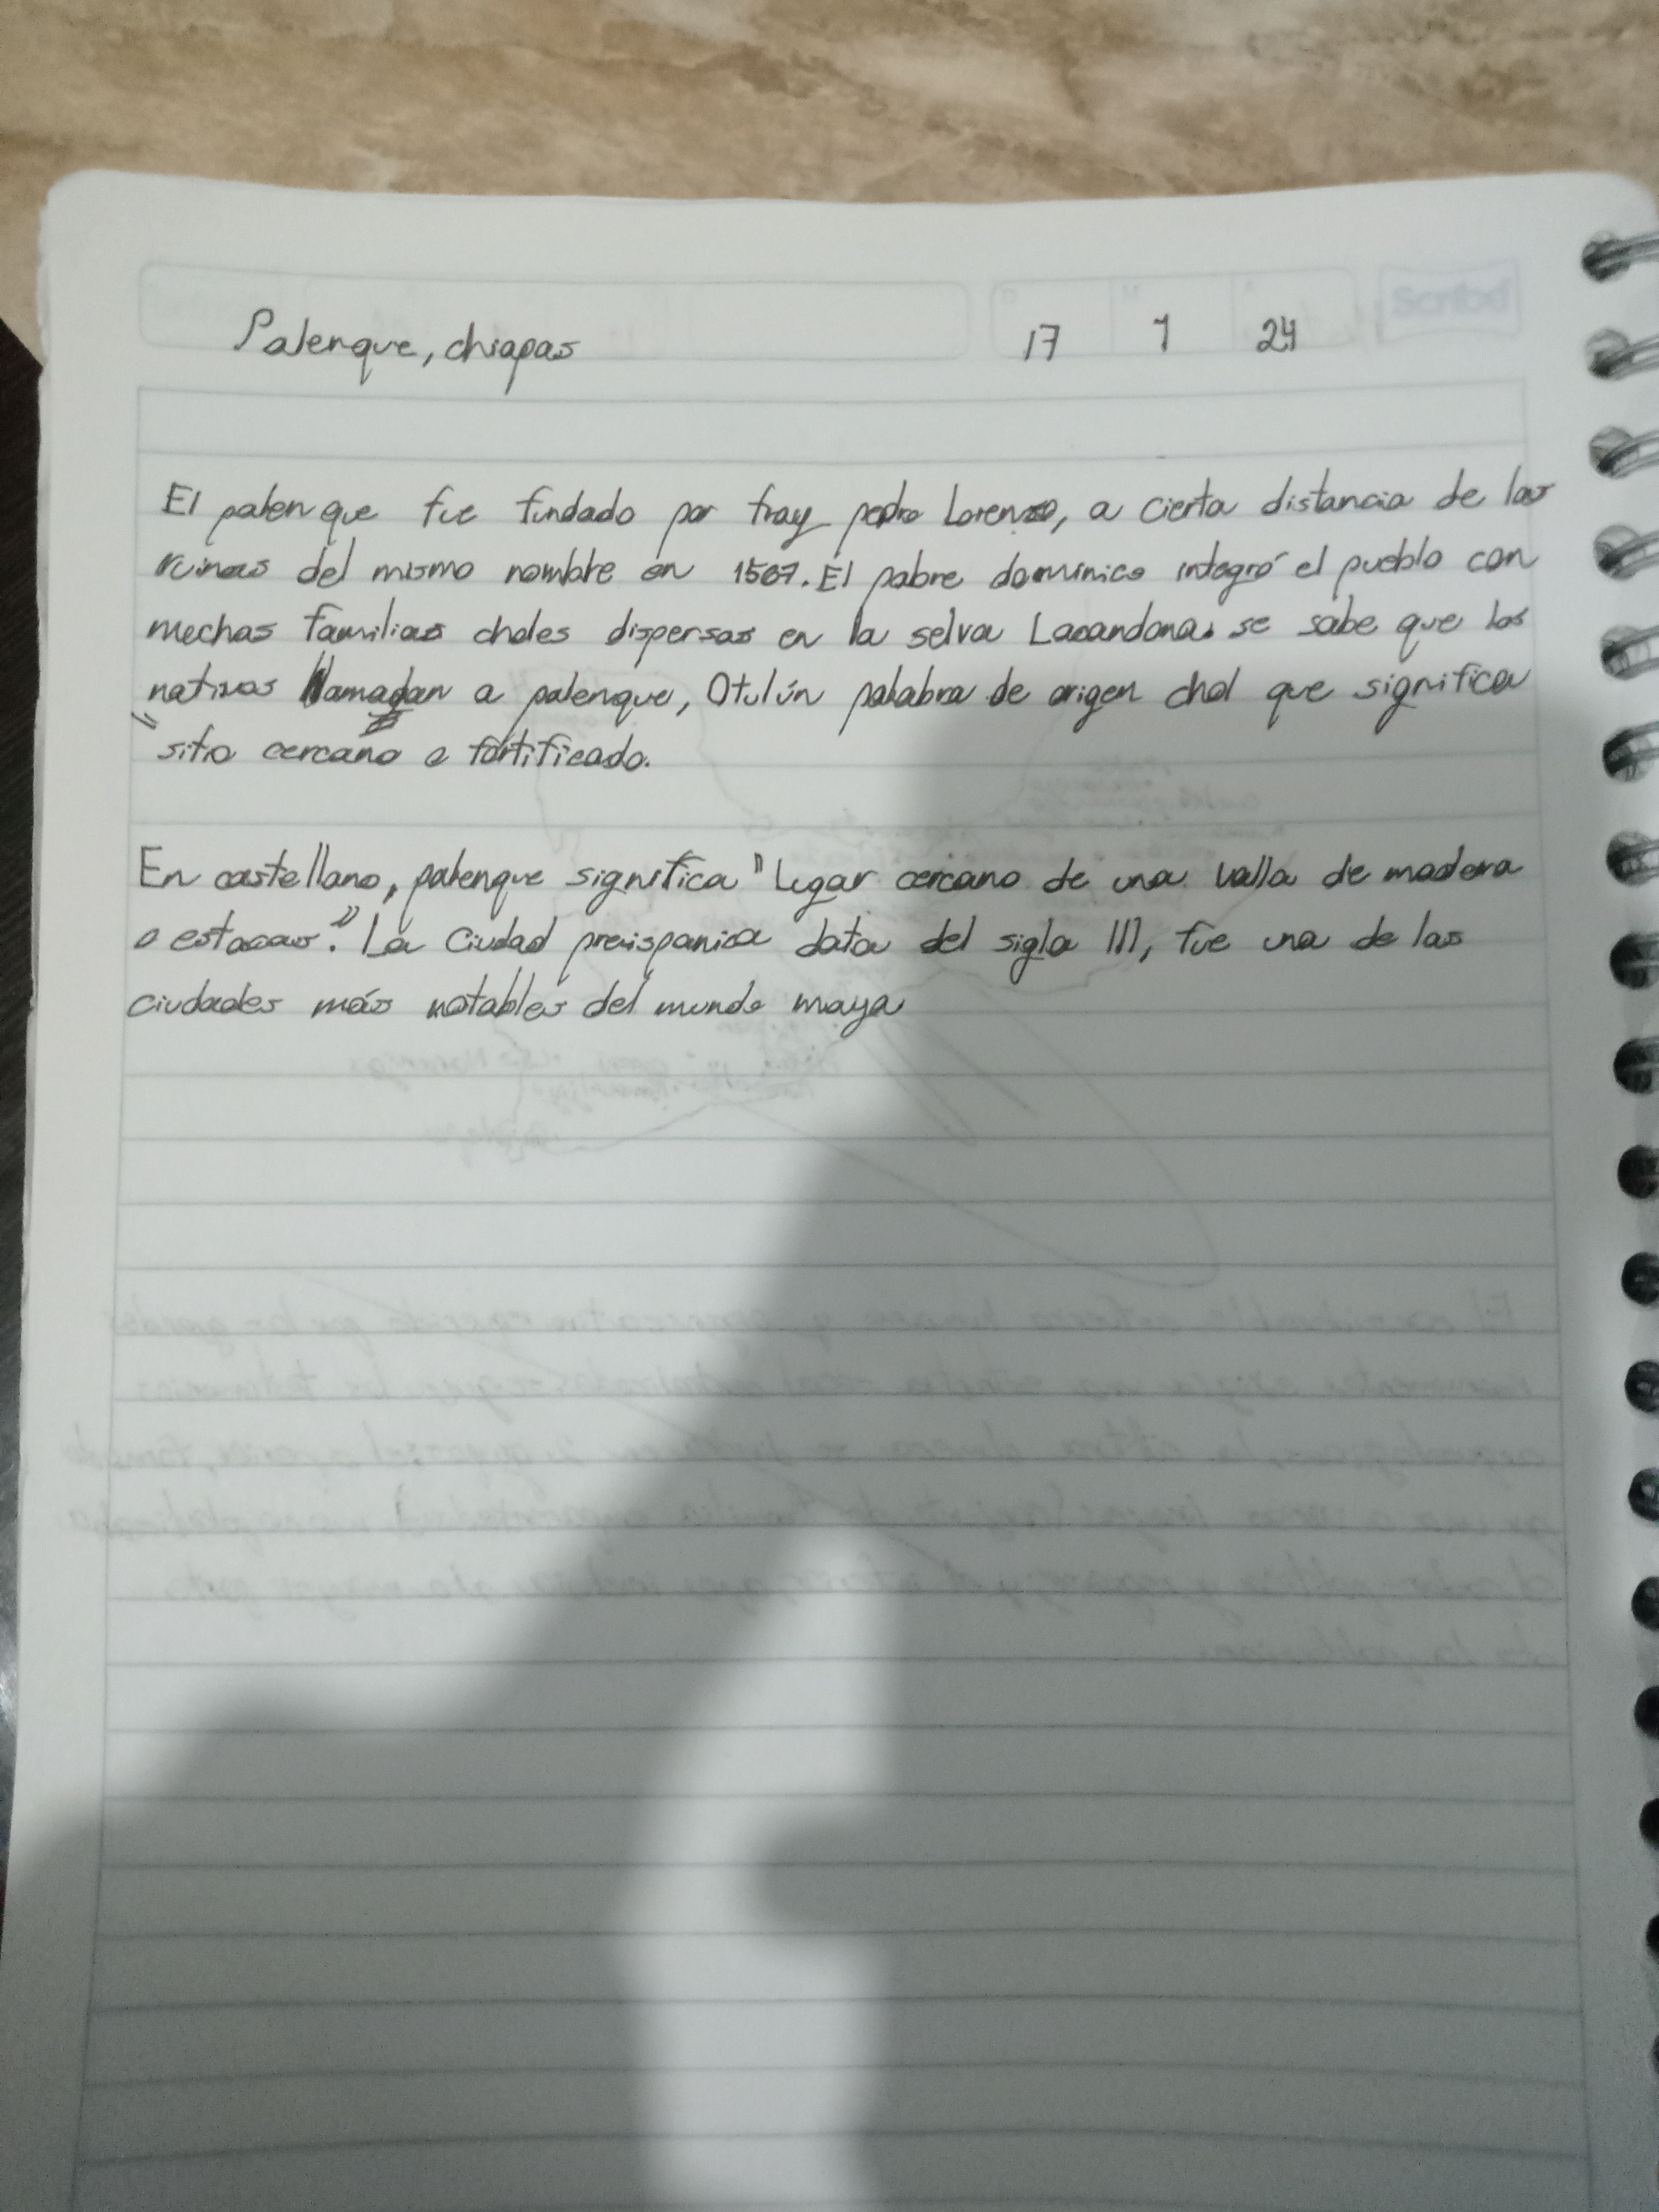 Palenque, chiapas 17 1 24
Scribe
El palenque fue fundado por fray pedro Lorenzo, a cierta distancia de las
ruinas del mismo nombre en 1567. El pabre dominico integró el pueblo con
mechas familias choles dispersas en la selva Lacandona. se sabe que los
nativos llamaban a palenque, Otulún palabra de origen chol que significa
"sitio cercano o fortificado.
En castellano, palenque significa "Lugar cercano de una valla de madera
o estacas". La ciudad preispanica data del siglo III, fue una de las
ciudades más notables del mundo maya